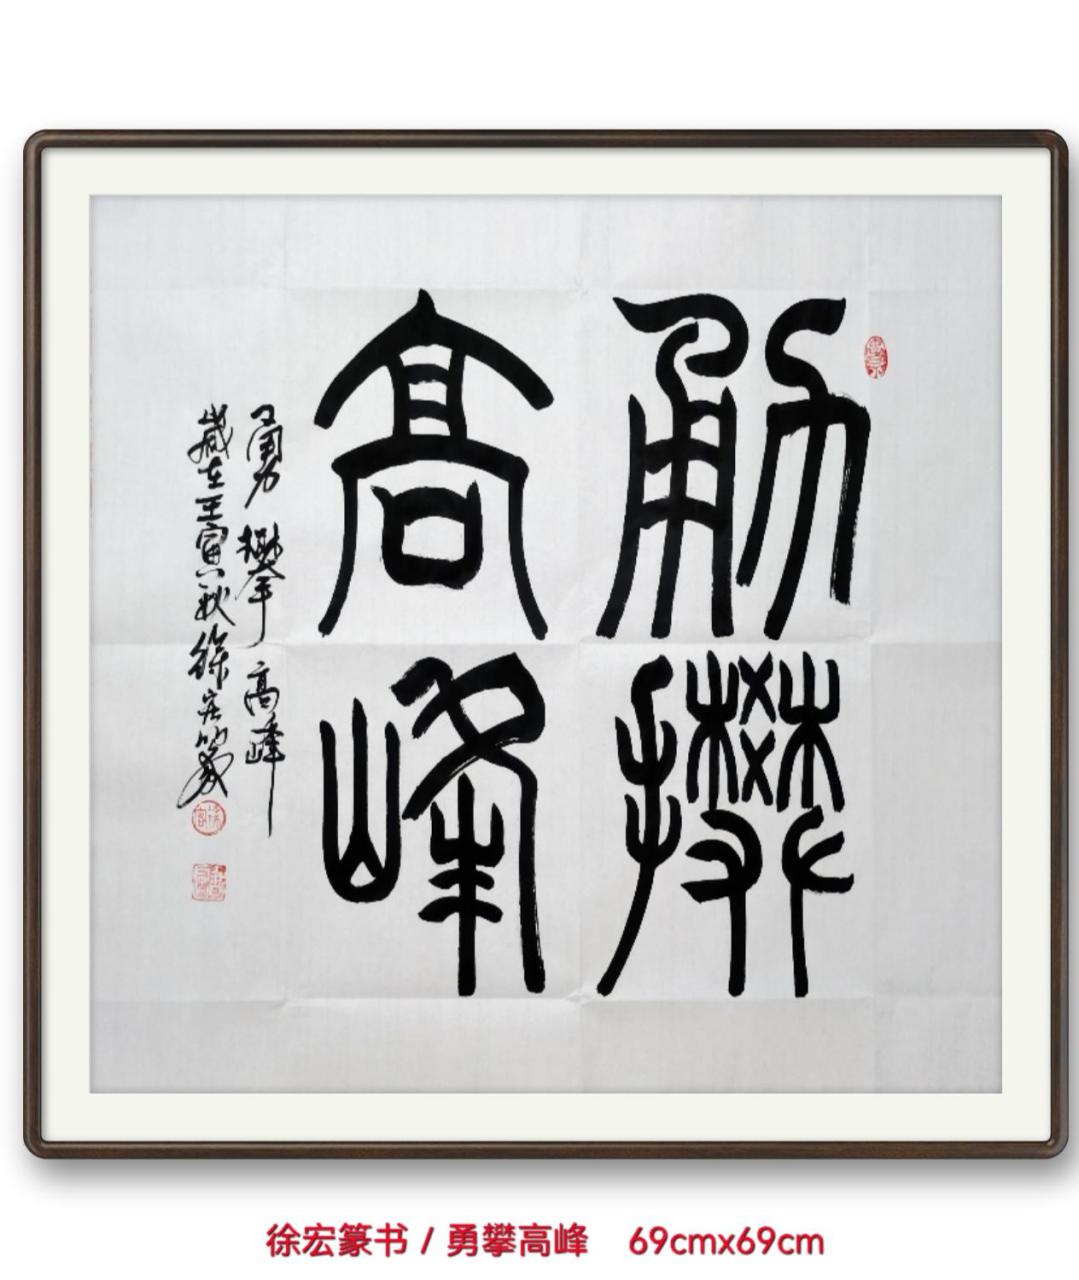 勇攀
高峰
勇攀高峰
歲在壬寅秋徐宏篆
徐宏篆书 / 勇攀高峰 69cmx69cm